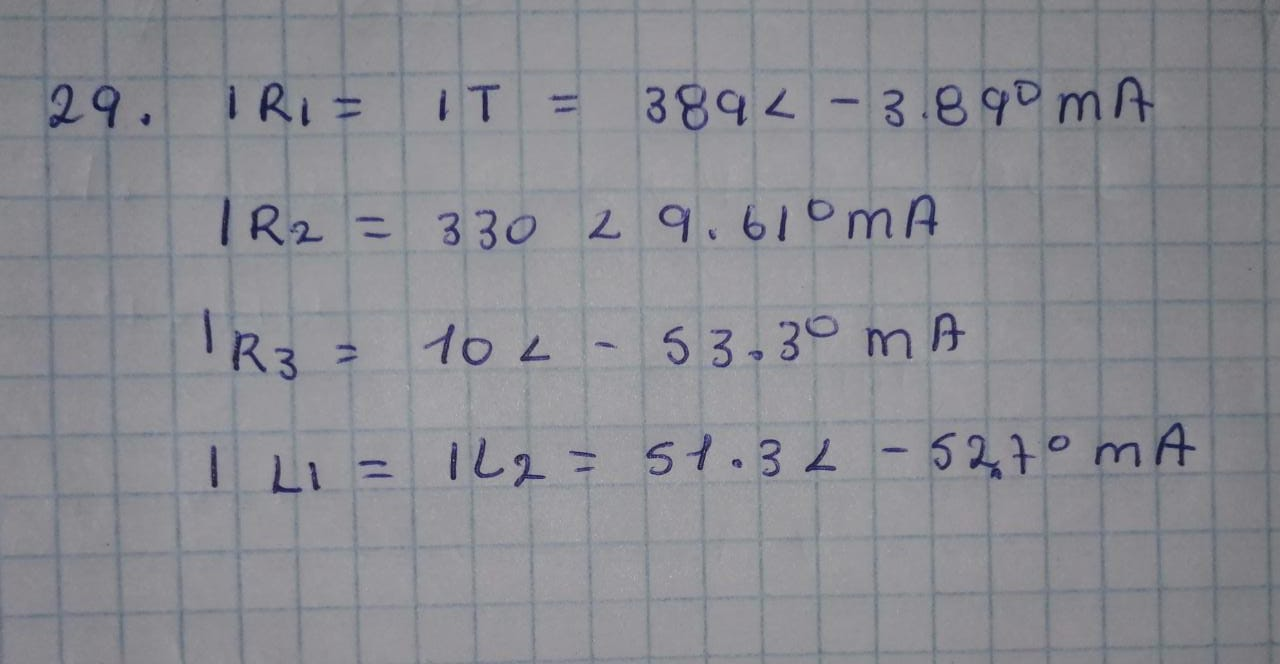 29. IR1 = IT = 389∠ -3.89° mA
IR2 = 330 ∠ 9.61° mA
IR3 = 10∠ - 53.3° mA
IL1 = IL2 = 51.3∠ -52.7° mA